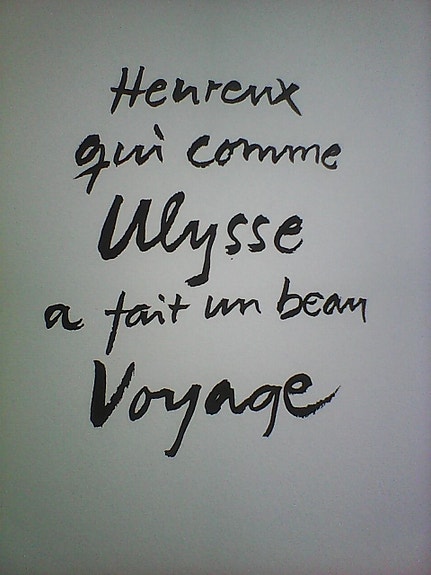 Heureux
qui comme
Ulysse
a fait un beau
Voyage